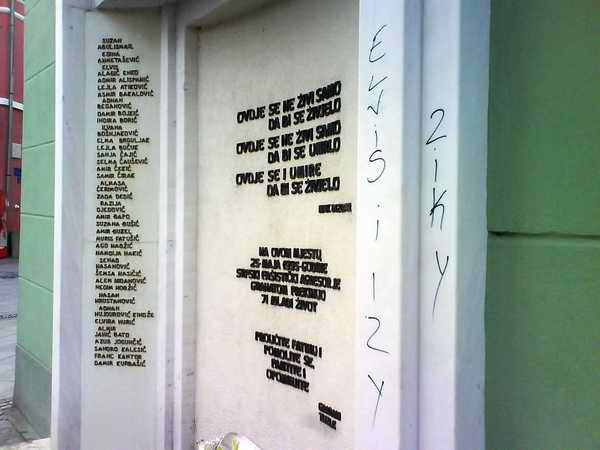 SUZAN
ABULISMAIL
EDINA
AHMETAŠEVIĆ
ELVIS
ALAGIĆ ENKO
ADMIR ALISPAHIĆ
LEJLA ATIKOVIĆ
ASMIR BAKALOVIĆ
ADNAN
BEGANOVIĆ
DAMIR BOJKIĆ
INDIRA BORIĆ
ILVANA
BOŠNJAKOVIĆ
ELMA BRGULJAK
LEJLA BUČUK
SANJA ČAJIĆ
SELMA ČAUŠEVIĆ
AMIR ČEKIĆ
SAMIR ČIRAK
ALMASA
ĆERIMOVIĆ
ZADA DEDIĆ
RAZIJA
DJEDOVIĆ
AMIR ĐAPO
SUZANA ĐUŠIĆ
AMIR ĐUZEL
NURIS FATUŠIĆ
AGO HADŽIĆ
HAMDIJA HAKIĆ
SENAD
HASANOVIĆ
ŠEMSA HASIČIĆ
ALEM HIDANOVIĆ
NEDIM HODŽIĆ
HASAN
HRUSTANOVIĆ
ADNAN
HUJDUROVIĆ ENGŽE
ELVIRA HURIĆ
ALMIR
JAHIĆ BATO
AZUR JOGUNČIĆ
SANDRO KALESIĆ
FRANC KANTOR
DAMIR KURBAŠIĆ
OVDJE SE NE ŽIVI SAMO
DA BI SE ŽIVJELO
OVDJE SE NE ŽIVI SAMO
DA BI SE UMRLO
OVDJE SE I UMIRE
DA BI SE ŽIVJELO
MAK DIZDAR
NA OVOM MJESTU
25 MAJA 1995 GODINE
SRPSKI FAŠISTIČKI AGRESOR JE
GRANATOM PREKINUO
71 MLADI ŽIVOT
PROUČITE FATIHU I
POMOLITE SE,
PAMTITE I
OPOMINJITE
GRAĐANI
TUZLE
ELViS i IZY
ZiKY